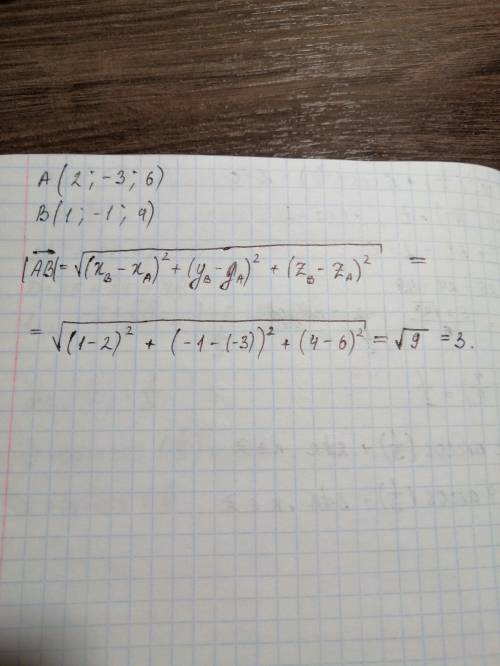 A(2;-3;6)
B(1;-1;4)
|AB|=√(x_B-x_A)²+(y_B-y_A)²+(z_B-z_A)² =
=√(1-2)²+(-1-(-3))²+(4-6)² =√9 =3.